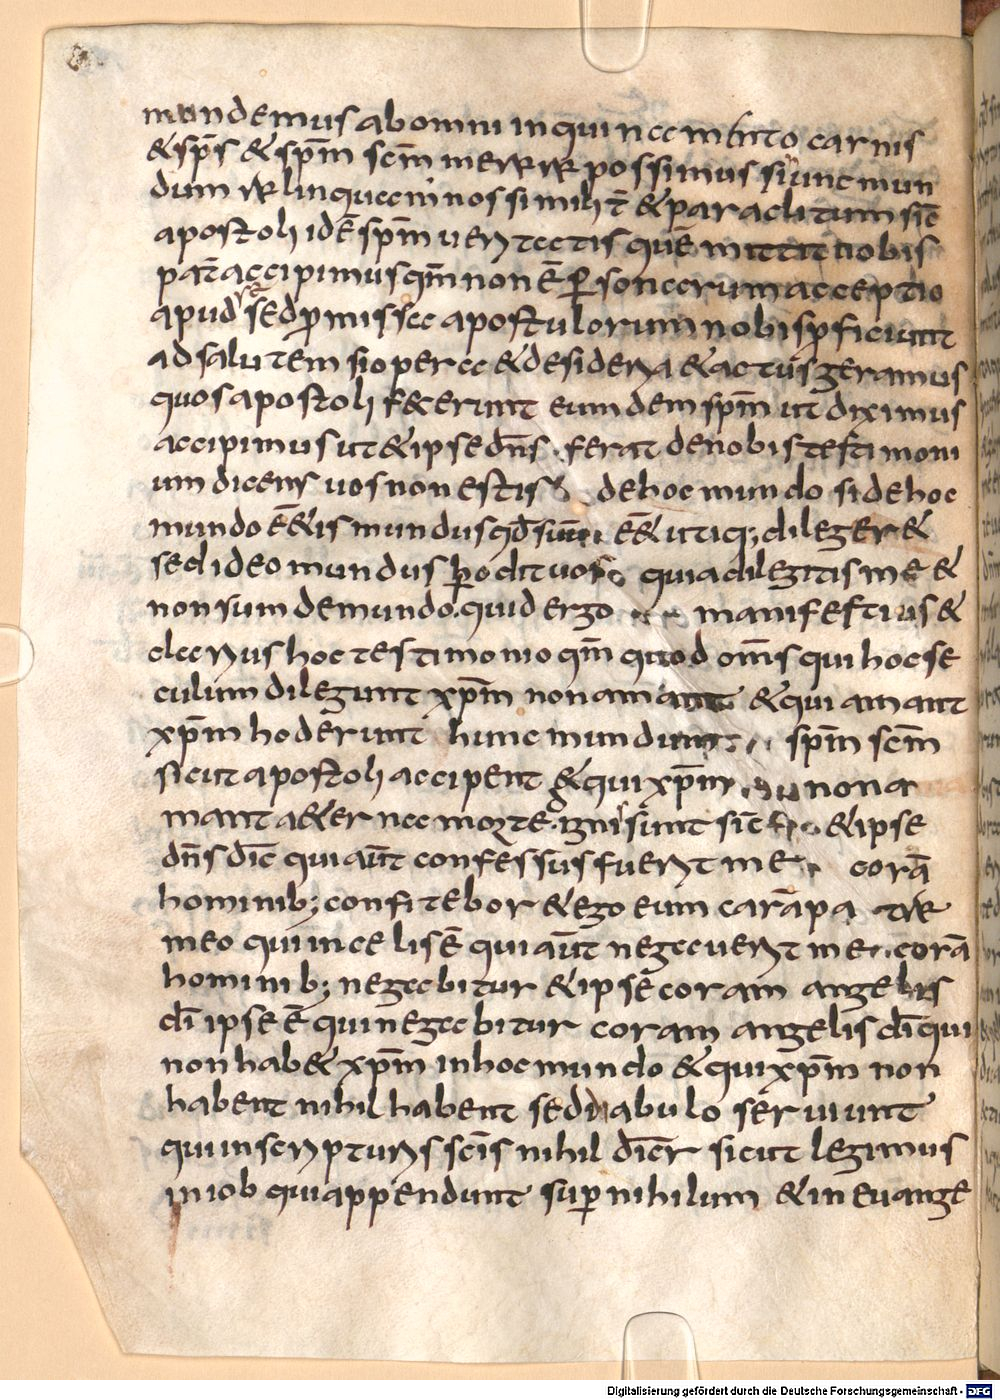 mundemus ab omni inquinamento carnis
& sp̄s & sp̄m scm̄ mereri possimus si hunc mun
dum relinquam nos simil & paraclitum sic̄
apostoli idē sp̄m ueritatis quē mittit nobis
pat̄ accipimus qm̄ non ē ꝑsonarum acceptio
apud sed ꝓmissa apostulorum nobis ꝓficiunt
ad salutem si opera & desideria & actus geramus
quos apostoli fecerunt eumdem sp̄m ut diximus
accipimus ut & ipse dn̄s ferat de nobis testimoni
um dicens uos non estis de hoc mundo si de hoc
mundo ēetis mundus qd̄ suum ēet utiq; dileger&
sed ideo mundus odit uos quia dilegitis me &
non sum de mundo quid ergo manifestius &
clarius hoc testimonio qm̄ quod om̄s qui hoc se
culum dilegunt xp̄m non amant & qui amant
xp̄m hoderunt hunc mundum sp̄m scm̄
sicut apostoli accipent & qui xp̄m non a
mant aeternae mortē digni sunt sic̄ & ipse
dn̄s dic̄ qui aūt confessus fuerit me corā
hominib; confitebor & ego eum corā patre
meo qui in celis ē qui aūt negauerit me corā
hominib; negabitur & ipse coram angelis
dī ipse ē qui negabitur coram angelis dī qui
non hab& xp̄m in hoc mundo & qui xp̄m non
habent nihil habent sed diabulo seruiunt
qui in scripturis scīs nihil dic̄r sicut legimus
in iob qui appendunt suꝑ nihilum & in euange
Digitalisierung gefördert durch die Deutsche Forschungsgemeinschaft - DFG